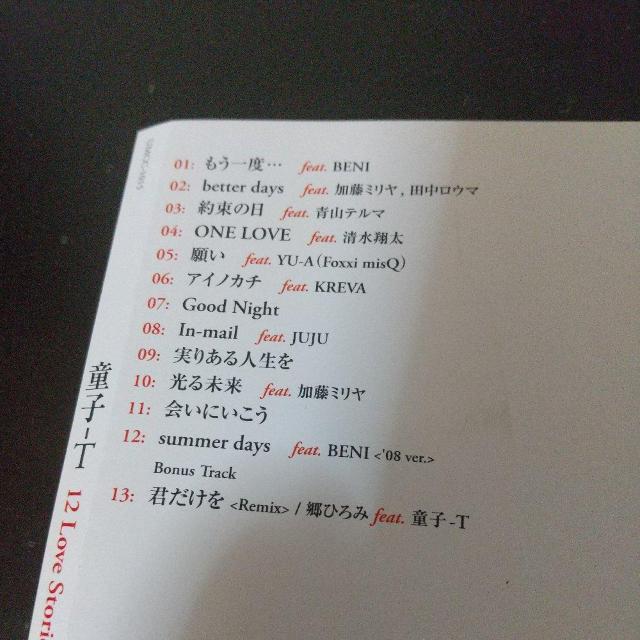 01: もう一度… feat. BENI
02: better days feat. 加藤ミリヤ, 田中ロウマ
03: 約束の日 feat. 青山テルマ
04: ONE LOVE feat. 清水翔太
05: 願い feat. YU-A (Foxxi misQ)
06: アイノカチ feat. KREVA
07: Good Night
08: In-mail feat. JUJU
09: 実りある人生を
10: 光る未来 feat. 加藤ミリヤ
11: 会いにいこう
12: summer days feat. BENI <'08 ver.>
Bonus Track
13: 君だけを <Remix> / 郷ひろみ feat. 童子-T
童子-T 12 Love Stori